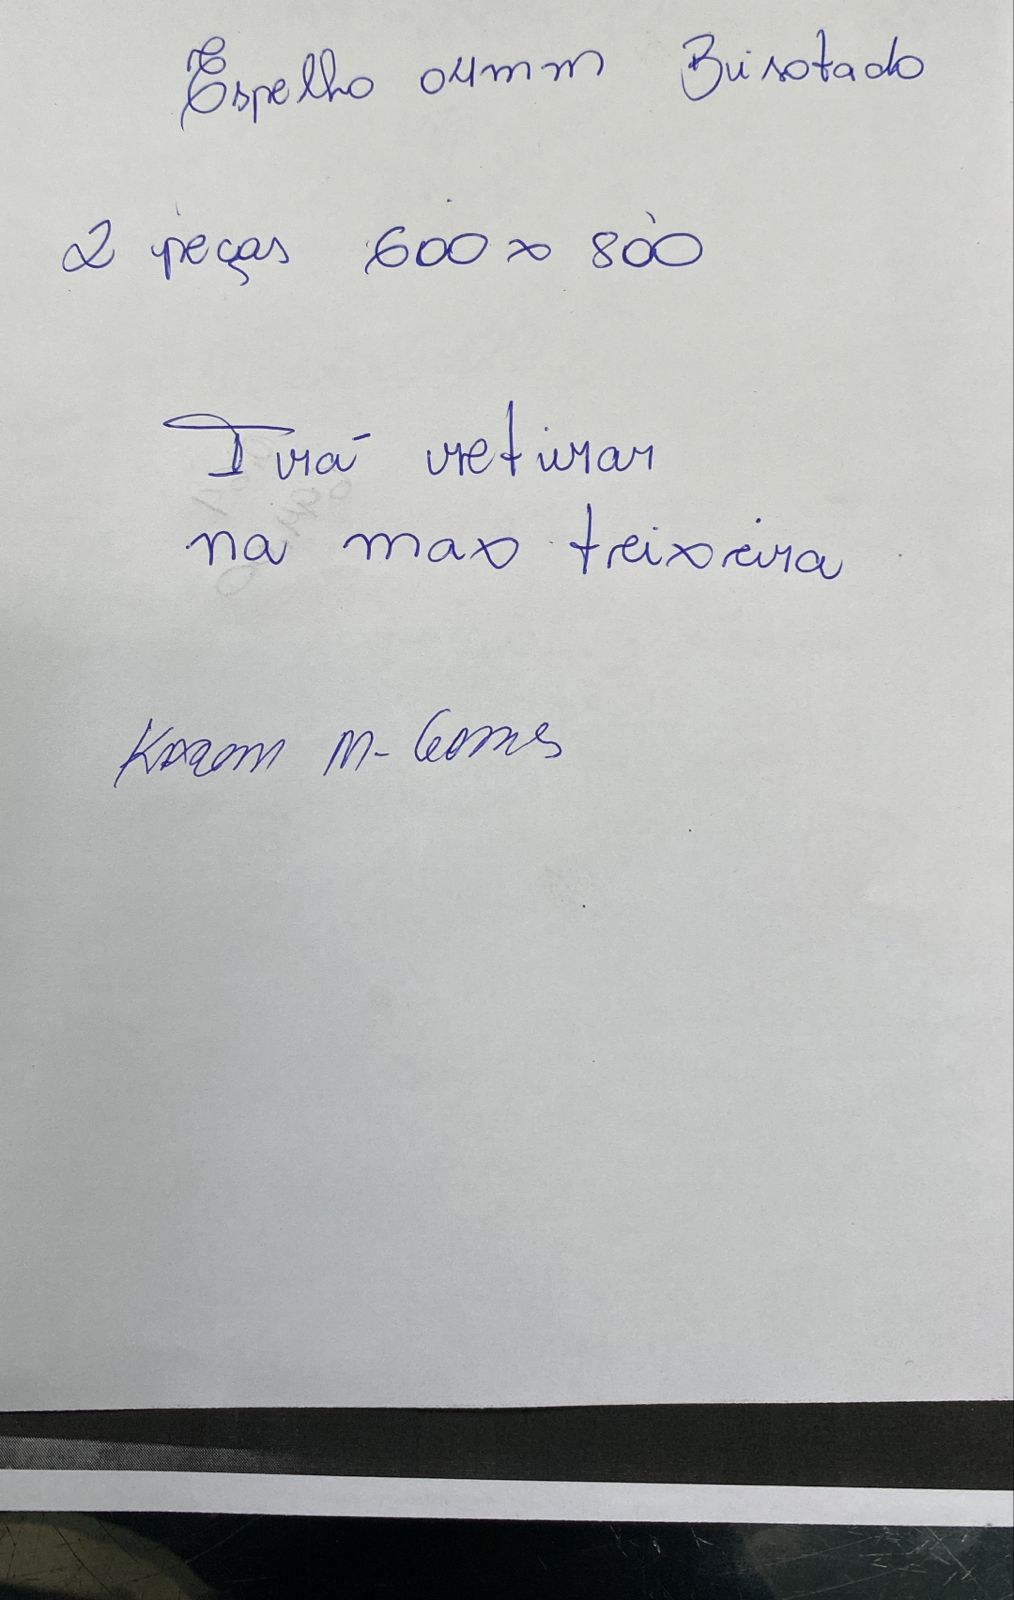 Espelho 04mm Bisotado
2 peças 600 x 800
Irá retirar
na max teixeira
M. Gomes